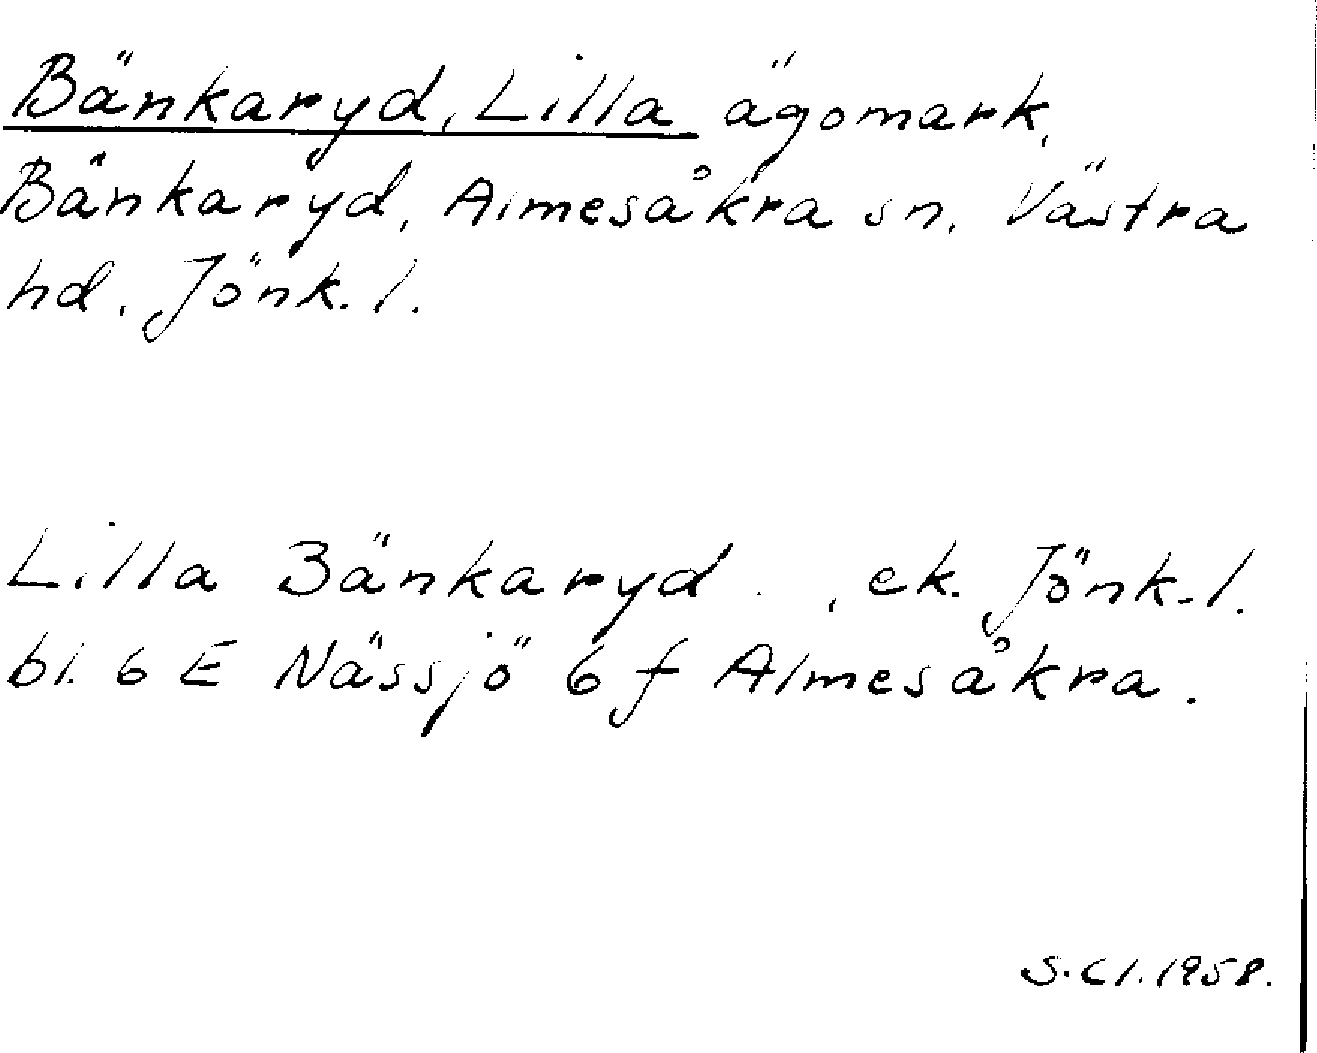 Bänkaryd, Lilla ägomark,
Bänkaryd, Almesåkra sn. Västra
hd. Jönk. l.
Lilla Bänkaryd . , ek. Jönk. l.
bl. 6 E Nässjö 6 f Almesåkra.
S. Cl. 1958.